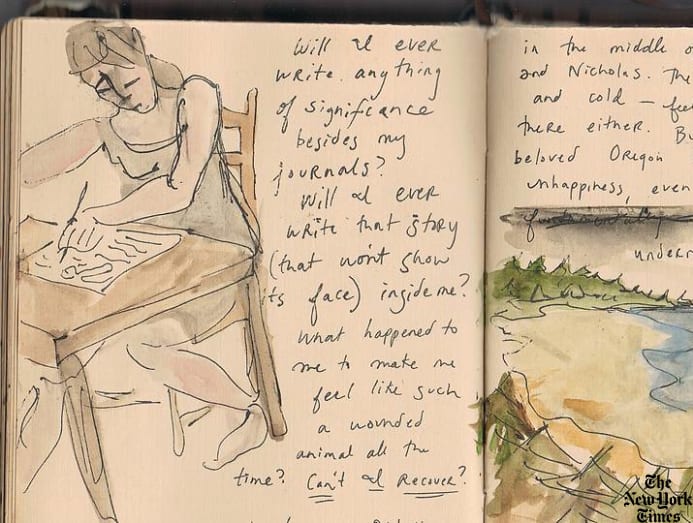 Will I ever
write anything
of significance
besides my
journals?
Will I ever
write that story
(that won't show
its face) inside me?
What happened to
me to make me
feel like such
a wounded
animal all the
time? Can't I Recover?
in the middle
and Nicholas. The
and cold — fee
there either. Bu
beloved Oregon
unhappiness, even
under
The
New York
Times